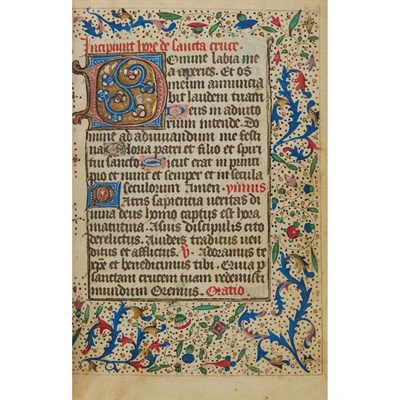 Incipiunt hore de sancta cruce.
Domine labia me
a aperies. Et os
meum annuncia
bit laudem tuam
Deus in adiuto
rium intende. Do
mine ad adiuvandum me fes
tina Gloria patri et filio et spiri
tui sancto Sicut erat in princi
pio et nunc et semper et in secula
seculorum Amen. ymnus
Patris sapientia veritas di
vina deus homo captus est hora
matutina. A suis discipulis cito
derelictus. A iudeis traditus ven
ditus et afflictus. V Adoramus te
xpe et benedicimus tibi. Quia per
sanctam crucem tuam redemisti
mundum Oremus. Oratio.